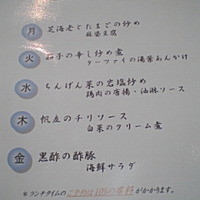 月 芝海老とたまごの炒め
麻婆豆腐
火 茄子の辛し炒め煮
ターツァイの湯葉あんかけ
水 ちんげん菜の岩塩炒め
鶏肉の唐揚・油淋ソース
木 帆立のチリソース
白菜のクリーム煮
金 黒酢の酢豚
海鮮サラダ
*ランチタイムの
がかかります。